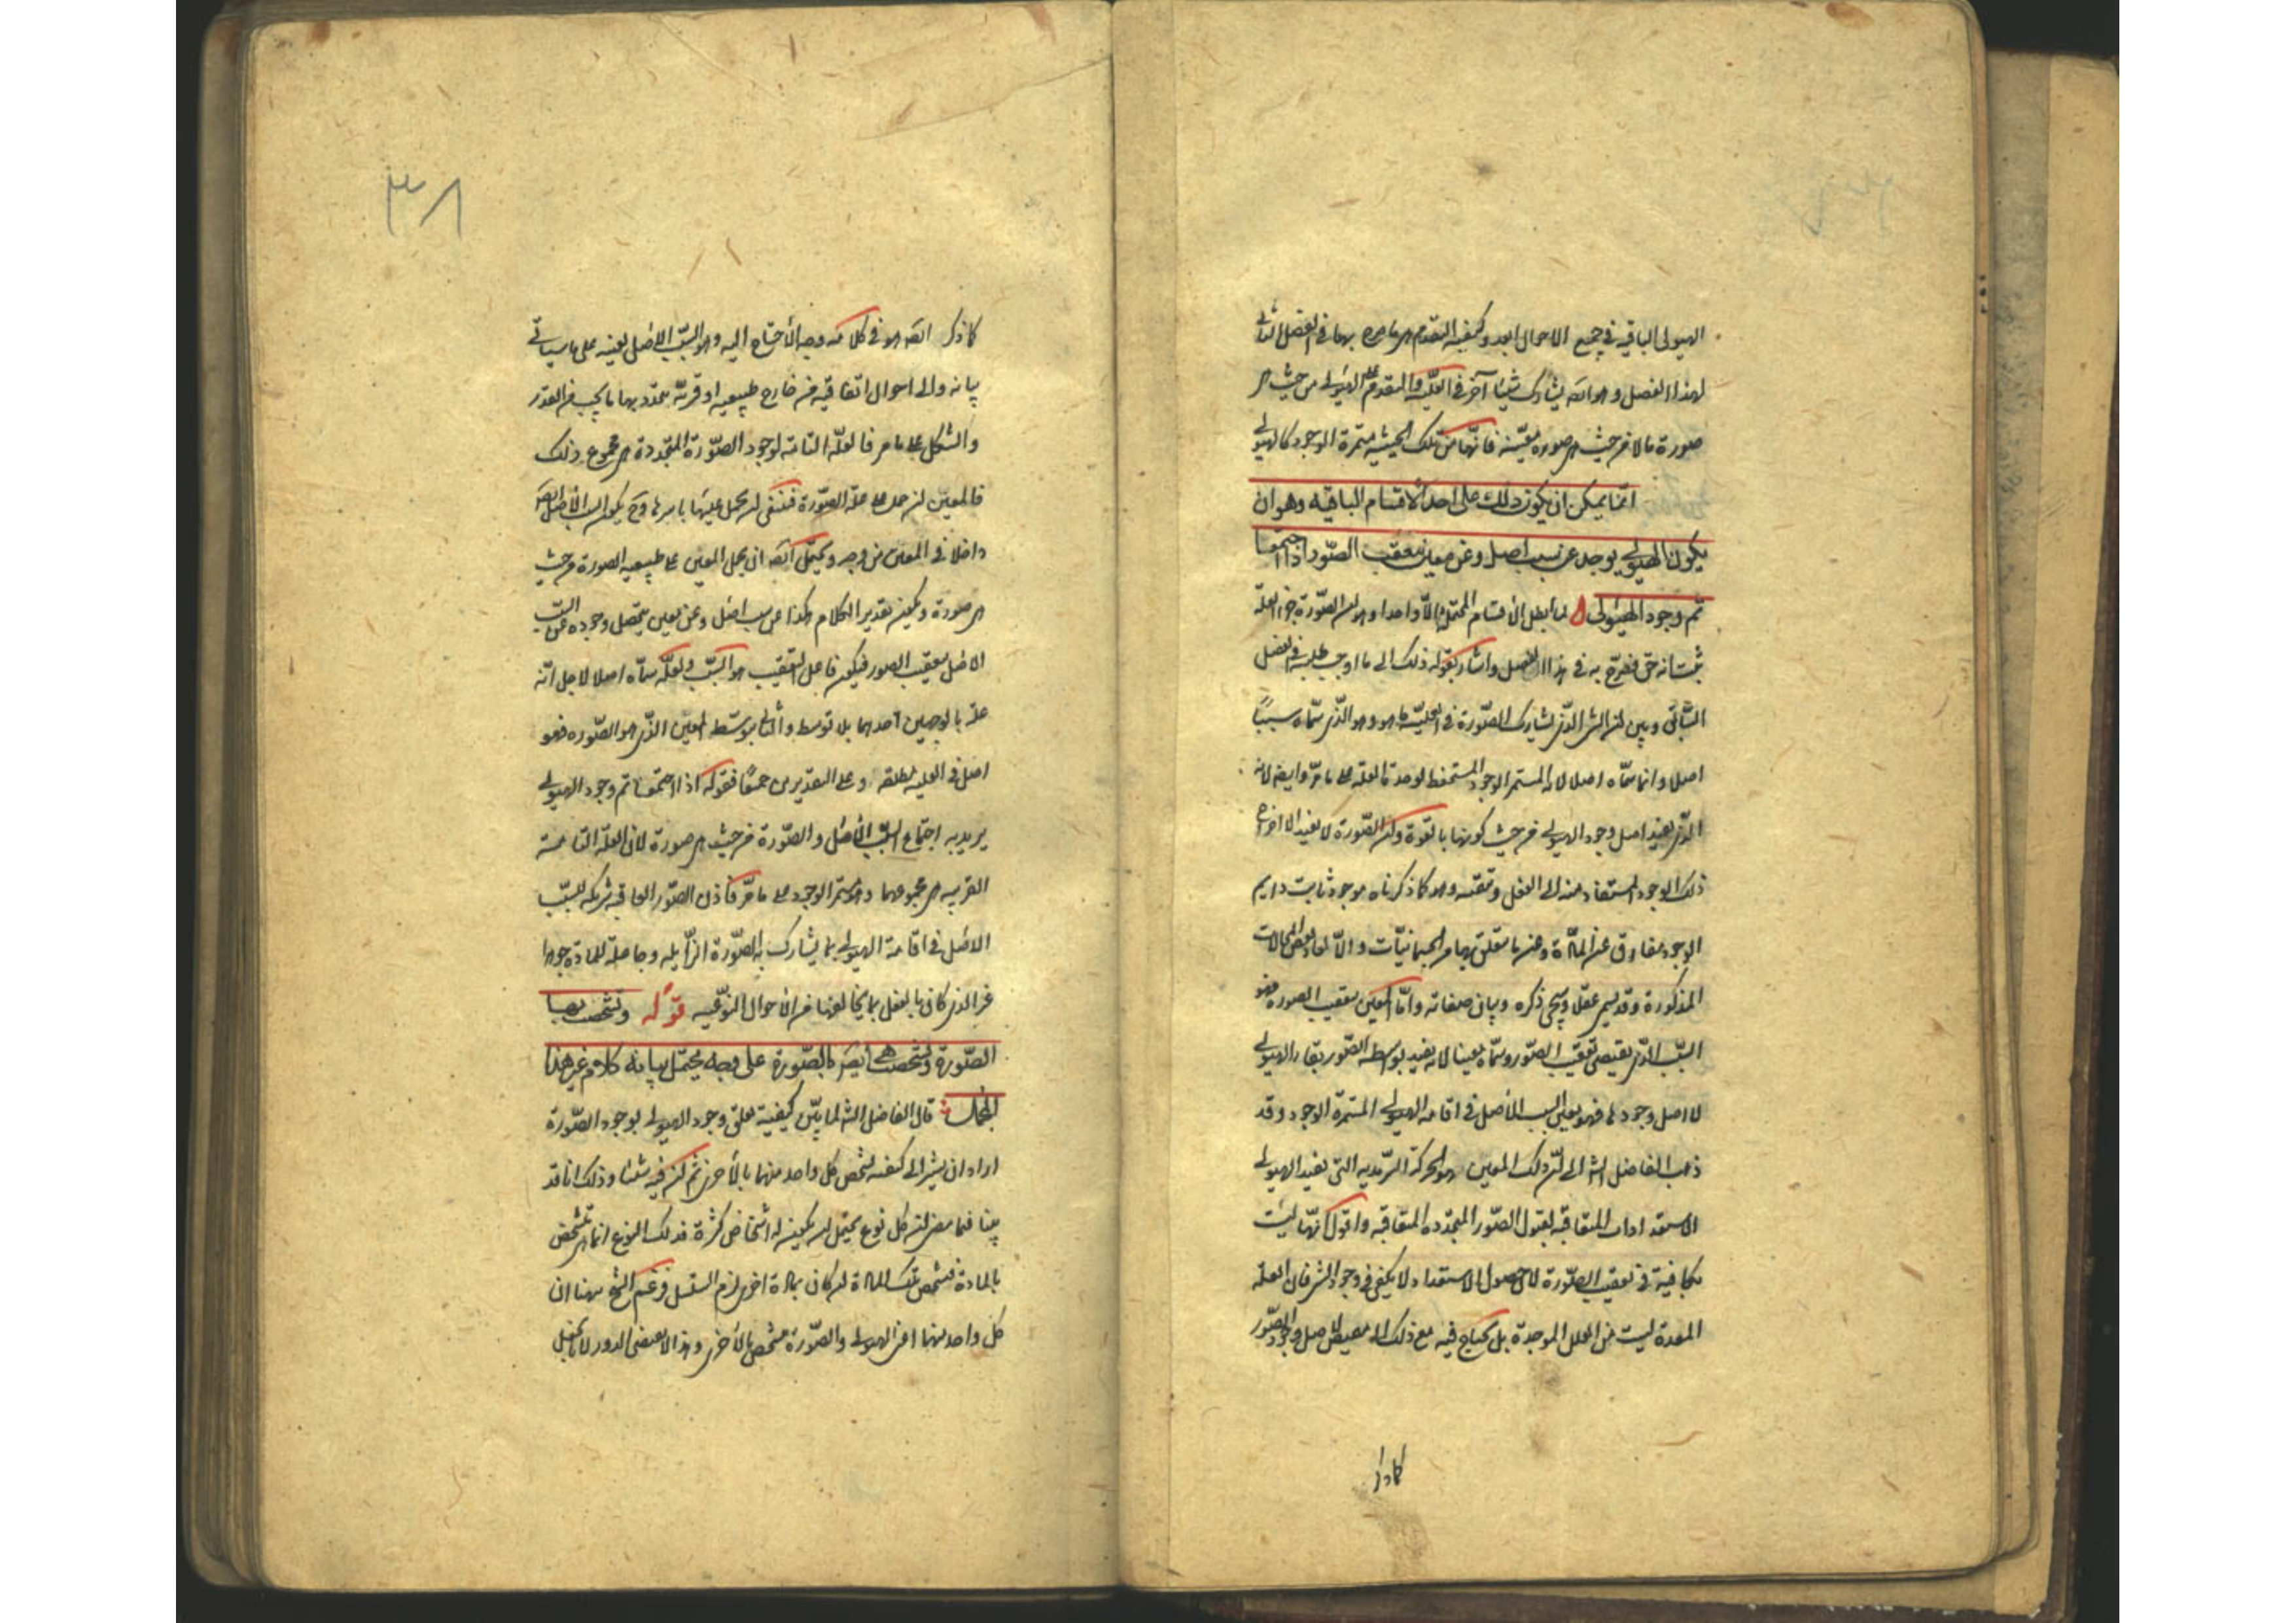 الهيولى الباقية في جميع الاحوال ابعد وكيفية التقدم بهما في الفصل التالى
لهذا الفصل وهو انه يشارك شيئا آخر في العلّية والتقدم على الهيولى من حيث هى
صورة ما لا من حيث هى صورة معيّنة فانّها من تلك الحيثية مستمرة الوجود كالهيولى
انما يمكن ان يكون ذلك على احد الاقسام الباقيه وهو ان
يكون الهيولى يوجد عن سبب اصل وعن معين بتعقيب الصّور اذا اجتمعا
تم وجود الهيولى لما ابطل الاقسام المحتملة الّا واحدا وهو ان الصّورة جزء العلّة
ثبت انه حق فصرّح به في هذا الفصل واشار بقوله ذلك الى ما اوجب طلبه في الفصل
الثانى وبين ان الشى الذى يشارك الصّورة في العلّية ما هو وهو الذى سمّاه سببًا
اصلا وانما سمّاه اصلا لانه المستمر الوجود المستحفظ لوحدة العلّة على ما مرّ وايضا لانه
الذى يفيد اصل وجود الهيولى من حيث كونها بالقوة ولان الصّورة لا يفيد الا اخراج
ذلك الوجود المستفاد منه الى الفعل وهو كما ذكرناه موجود ثابت دايم
الوجود مفارق عن المادّة وعن ما يتعلق بها من الجسمانيّات والّا لعاد بعض المحالات
المذكورة وقد يسمى عقلا وسيجى ذكره وبيان صفاته وامّا المعين بتعقيب الصور فهو
السّبب الذى يقتضى تعقيب الصّور وسمّاه معينا لانه يفيد بواسطة الصّور بقاء الهيولى
لا اصل وجودها فهو يعين السبب الاصل في اقامة الهيولى المستمرّة الوجود وقد
ذهب الفاضل الش الى ان ذلك المعين هو الحركة السّرمدية التى يفيد الهيولى
الاستعدادات المتعاقبة لقبول الصّور المتجدّدة المتعاقبة واقول انّها ليست
بكافية في تعقيب الصّورة لان حصول الاستعداد لا يكفى في وجود الشى فان العلّة
المعدة ليست من العلل الموجدة بل يحتاج فيه مع ذلك الى مفيض لاصل وجود الصّور
كما ذكر
٣٨
كما ذكر ايضا هو في كلامه وجه الاحتياج اليه وهو السّبب الاصل بعينه على ما سياتى
بيانه والى احوال اتفاقية من خارج طبيعية او قسريّة يتحدد بها ما يجب من القدر
والشكل على ما مر فالعلّة التامة لوجود الصّورة المتجددة هى مجموع ذلك
فالمعين ان حمل على علة الصّورة فينبغى ان يحمل عليها باسرها وح يكون السبب الاصل ايضا
داخلا في المعين من وجه ويحتمل ايضا ان يحمل المعين على طبيعية الصورة من حيث
هى صورة ويكون تقدير الكلام هكذا عن سبب اصل وعن معين يتحصل وجوده عن السبب
الاصل بتعقيب الصور فيكون فاعل التعقيب هو السّبب ولعلّه سمّاه اصلا لاجل انّه
علّة بالوجهين احدهما بلا توسط والثانى بتوسّط المعين الذى هو الصّورة فهو
اصل في العلية مطلقه وعلى التقديرين جميعًا فقوله اذا اجتمعا تم وجود الهيولى
يريد به اجتماع السّبب الاصل والصّورة من حيث هى صورة لان العلّة التامة
القريبه هى مجموعهما وهو مستمر الوجود على ما مرّ فاذن الصّور العاقبة شريكه للسّبب
الاصل في اقامة الهيولى بما يشارك به الصّورة الزّايله وجاعلة للمادة جوهرا
غير الذى كان بالفعل بما يخالفها من الاحوال النوعيه قوله وتشخص بها
الصّورة وتشخصت هى ايضا بالصّورة على وجه يحتمل بيانه كلام غير هذا
المجمل قال الفاضل الش لما بيّن كيفية تعلق وجود الهيولى بوجود الصّورة
اراد ان يشير الى كيفية تشخص كل واحد منهما بالآخر ثم ان فيه شكا وذلك انا قد
بينا فيما مضى ان كل نوع يحتمل ان يكون له اشخاص كثيرة فذلك النوع انما يتشخص
بالمادة فتشخص تلك المادة ان كان بمادة اخرى لزم التسلسل وزعم الشيخ ههنا ان
كل واحد منهما اعنى الهيولى والصّورة متشخص بالآخر وهذا لا يقتضى الدور